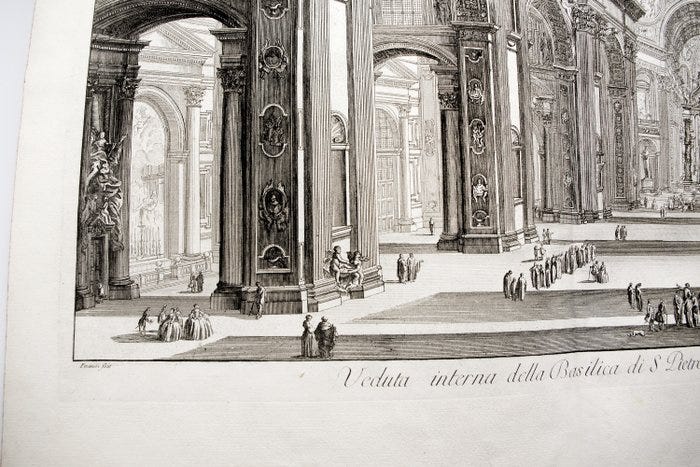 Piranesi fecit
Veduta interna della Basilica di S Pietro